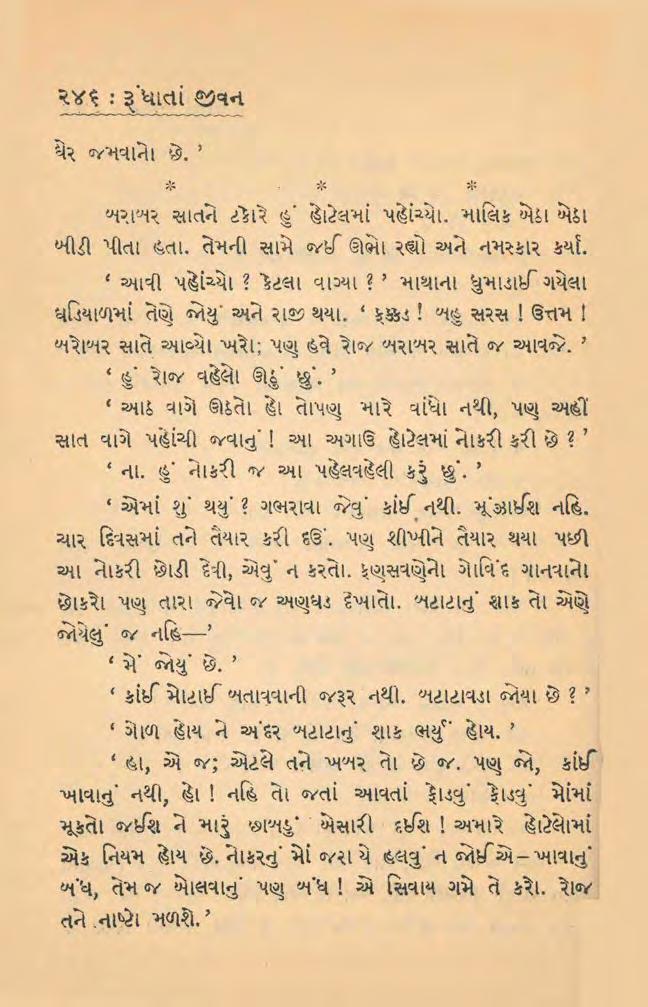 ૨૪૬ : રૂંધાતાં જીવન
ઘેર જમવાનો છે. ’
* * *
બરાબર સાતને ટકોરે હું હોટેલમાં પહોંચ્યો. માલિક બેઠા બેઠા
બીડી પીતા હતા. તેમની સામે જઈ ઊભો રહ્યો અને નમસ્કાર કર્યા.
‘ આવી પહોંચ્યો ? કેટલા વાગ્યા ? ’ માથાના ધુમાડાઈ ગયેલા
ઘડિયાળમાં તેણે જોયું અને રાજી થયા. ‘ ફક્કડ ! બહુ સરસ ! ઉત્તમ !
બરોબર સાતે આવ્યો ખરો; પણ હવે રોજ બરાબર સાતે જ આવજે. ’
‘ હું રોજ વહેલો ઊઠું છું. ’
‘ આઠ વાગે ઊઠતો હો તોપણ મારે વાંધો નથી, પણ અહીં
સાત વાગે પહોંચી જવાનું ! આ અગાઉ હોટેલમાં નોકરી કરી છે ? ’
‘ ના. હું નોકરી જ આ પહેલવહેલી કરું છું. ’
‘ એમાં શું થયું ? ગભરાવા જેવું કાંઈ નથી. મૂંઝાઈશ નહિ.
ચાર દિવસમાં તને તૈયાર કરી દઉં. પણ શીખીને તૈયાર થયા પછી
આ નોકરી છોડી દેવી, એવું ન કરતો. ફણસવણેનો ગોવિંદ ગાનવાનો
છોકરો પણ તારા જેવો જ અણઘડ દેખાતો. બટાટાનું શાક તો એણે
જોયેલું જ નહિ—’
‘ મેં જોયું છે. ’
‘ કાંઈ મોટાઈ બતાવવાની જરૂર નથી. બટાટાવડા જોયા છે ? ’
‘ ગોળ હોય ને અંદર બટાટાનું શાક ભર્યું હોય. ’
‘ હા, એ જ; એટલે તને ખબર તો છે જ. પણ જો, કાંઈ
ખાવાનું નથી, હો ! નહિ તો જતાં આવતાં ફોડવું ફોડવું મોંમાં
મૂકતો જઈશ ને મારું છાબડું બેસારી દઈશ ! અમારે હોટેલોમાં
એક નિયમ હોય છે. નોકરનું મોં જરા યે હલવું ન જોઈએ–ખાવાનું
બંધ, તેમ જ બોલવાનું પણ બંધ ! એ સિવાય ગમે તે કરો. રોજ
તને નાષ્ટો મળશે. ’